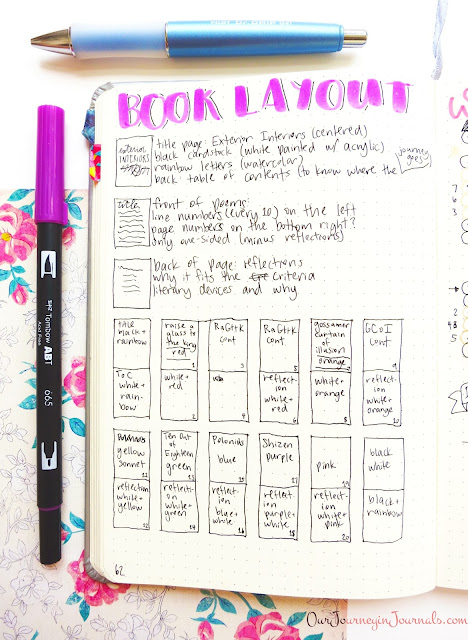 BOOK LAYOUT
Exterior
INTERIORS
title page: Exterior Interiors (centered)
black cardstock (white painted w/ acrylic)
rainbow letters (watercolor)
back: table of contents (to know where the journey goes)
title
front of poems:
line numbers (every 10) on the left
page numbers on the bottom right?
only one-sided (minus reflections)
back of page: reflections
why it fits the criteria
literary devices and why
title black + rainbow
raise a glass to the king red 1
RaGttK cont 3
RaGttK cont 5
gossamer curtain of illusion orange
GCoI cont 9
ToC white + rainbow
white + red 2
4
reflection white + red 6
white + orange 8
reflection white + orange 10
yellow sonnet 11
Ten Out of Eighteen green 13
Polonius blue 15
Shizen purple 17
pink 19
black white
reflection white + yellow 12
reflection white + green 14
reflection blue + white 16
reflection purple + white 18
reflection white + pink 20
black + rainbow
62
Tombow ABT
665
OurJourneyinJournals.com